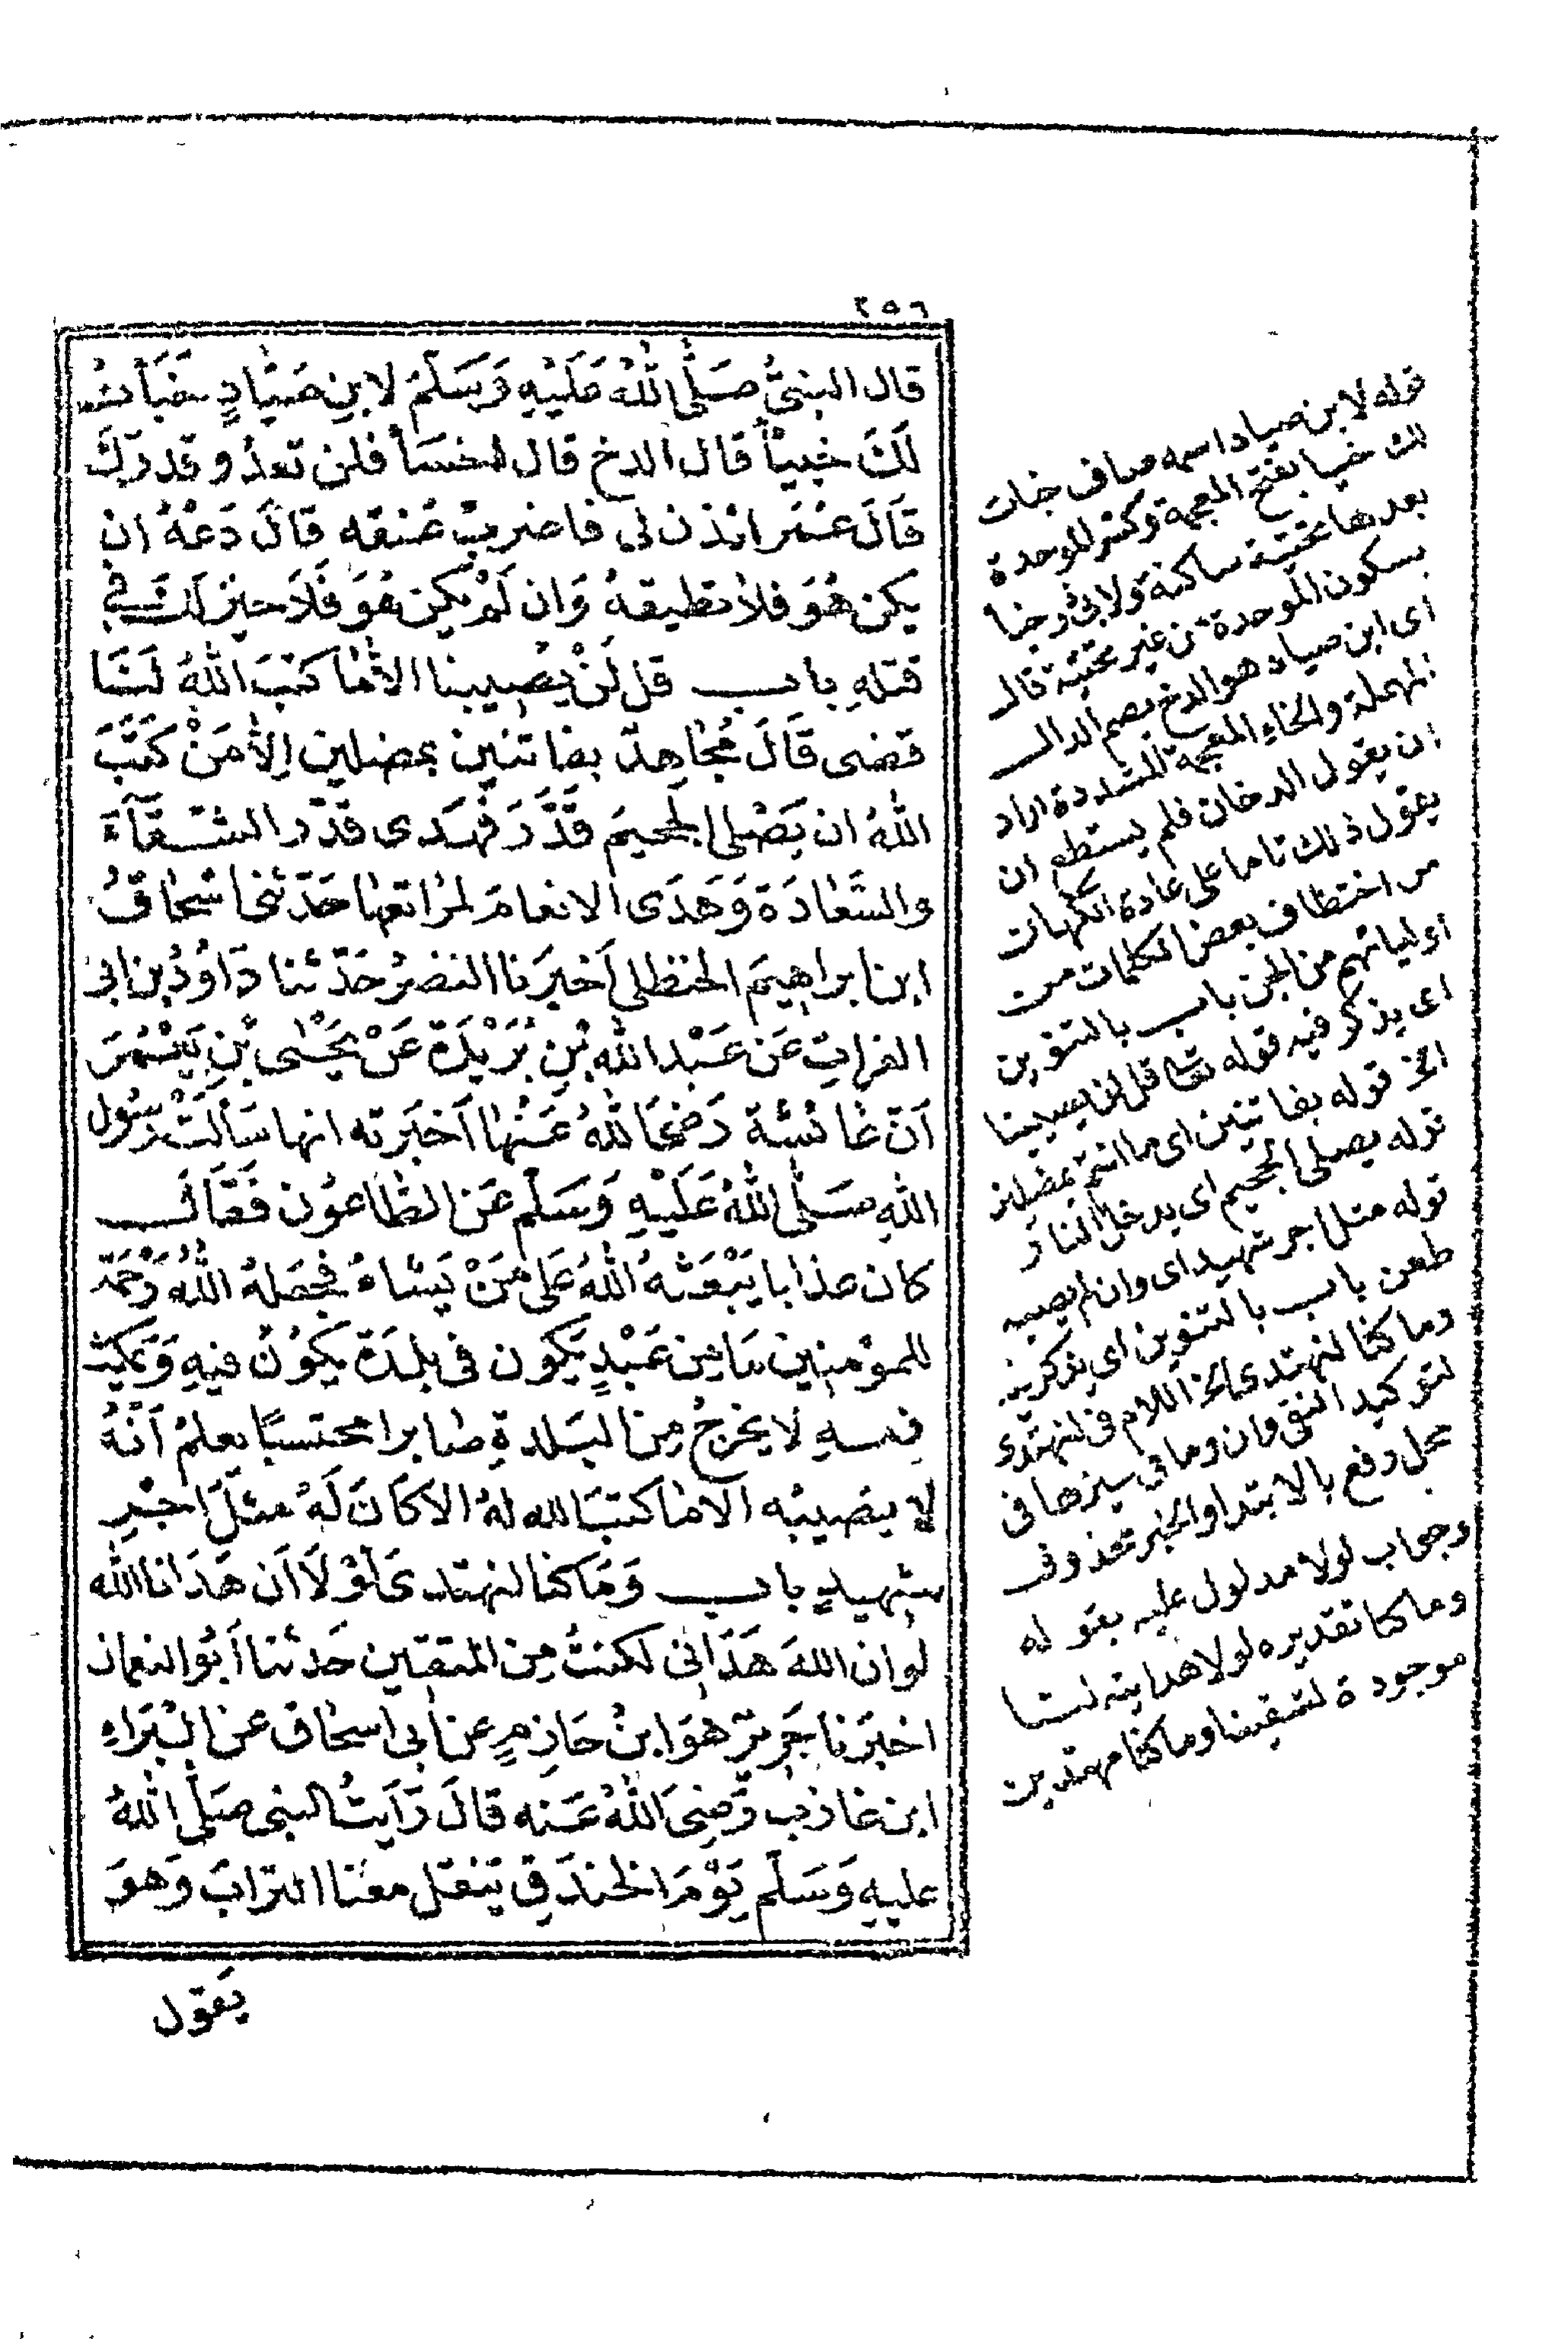 ٢٥٦
قال النبيُّ صَلَّى اللهُ عَلَيْهِ وَسَلَّمَ لابنِ صَيَّادٍ خَبَأْتُ
لَكَ خَبِيأً قال الدخ قال اخسَأْ فلن تعدُو قدرَكَ
قَالَ عُمَر ائذن لى فاضربَ عُنقه قالَ دَعْهُ ان
يكن هُوَ فلا تطيقهُ وَان لَمْ يكن هُوَ فَلَا خيرَ لَكَ فى
قتلهِ باب قل لَنْ يُصيبنا الا مَا كتبَ اللهُ لَنَا
قضى قَالَ مُجَاهِدٌ بفاتنين بمضلين اِلّا مَنْ كَتَبَ
اللهُ ان يَصْلى الجحيمَ قَدَّرَ فَهَدى قدّر الشَّقَآءَ
والسَّعَادَةَ وَهَدَى الانعامَ لمراتعها حَدّثنى اسْحَاقُ
ابن ابراهيمَ الحنظلى اَخبرَنا النضرُ حَدّثنا دَاوُدُ بن ابى
الفراتِ عَن عَبْد الله بْنِ بُرَيْدَةَ عَنْ يَحْيٰى بْنِ يَعْمُرَ
اَنّ عَائشةَ رَضِىَ اللهُ عَنْهَا اَخبَرته انها سَاَلَتْ رَسُول
اللهِ صَلَّى اللهُ عَلَيْهِ وَسَلّم عَن الطَّاعوُن فَقَالَ
كان عذابا يَبْعَثهُ اللهُ عَلى مَنْ يَشَاءُ فجعَلهُ اللهُ رَحْمَةً
للمؤمنين مَا مِن عَبْدٍ يَكون فى بلدَةٍ يكوُنُ فيهِ وَيمكثُ
فيهِ لا يخرجُ مِنَ البَلدةِ صَابرا محتسبًا يعلمُ اَنَّهُ
لا يصيبُه الا مَا كتبَ الله لهُ الا كَانَ لَهُ مثلَ اجْرِ
شهيدٍ باب وَمَا كنا لنهتدىَ لَوْلَا اَن هَدَانا الله
لو ان اللهَ هَدَانِى لكنتُ مِنَ المتقين حَدثنا اَبُو النعمان
اخبَرنا جَرِيرٌ هوَ ابنُ حَازِمٍ عن ابى اسحَاق عن البَرَاءِ
ابن عَازبٍ رَضِىَ اللهُ عَنه قالَ رَاَيتُ النبى صَلَّى اللهُ
عليهِ وَسَلّم يَوْمَ الخندَقِ يَنقل معَنا الترابَ وَهوَ
يَقول
قوله لابن صياد اسمه صاف خبات
لك خبيا بفتح المعجمة وكسر الموحدة
بعدها تحتية ساكنة ولابى ذر خبا
بسكون الموحدة من غير تحتية قال
اى ابن صياد هو الدخ بضم الدال
المهملة والخاء المعجمة المشددة اراد
ان يقول الدخان فلم يستطع ان
يقول ذلك تاما على عادة الكهان
من اختطاف بعض الكلمات من
اوليائهم من الجن باب بالتنوين
اى يذكر فيه قوله تعالى قل لن يصيبنا
الخ قوله بفاتنين اى ما انتم بمضلين
قوله يصلى الجحيم اى يدخل النار
قوله مثل اجر شهيد اى وان لم يصبه
طعن باب بالتنوين اى يذكر فيه
وما كنا لنهتدى الخ اللام فى لنهتدى
لتوكيد النفى وان وما فى حيزها فى
محل رفع بالابتداء والخبر محذوف
وجواب لولا مدلول عليه بقوله
وما كنا تقديره لولا هدايته لنا
موجودة لشقينا وما كنا مهتدين